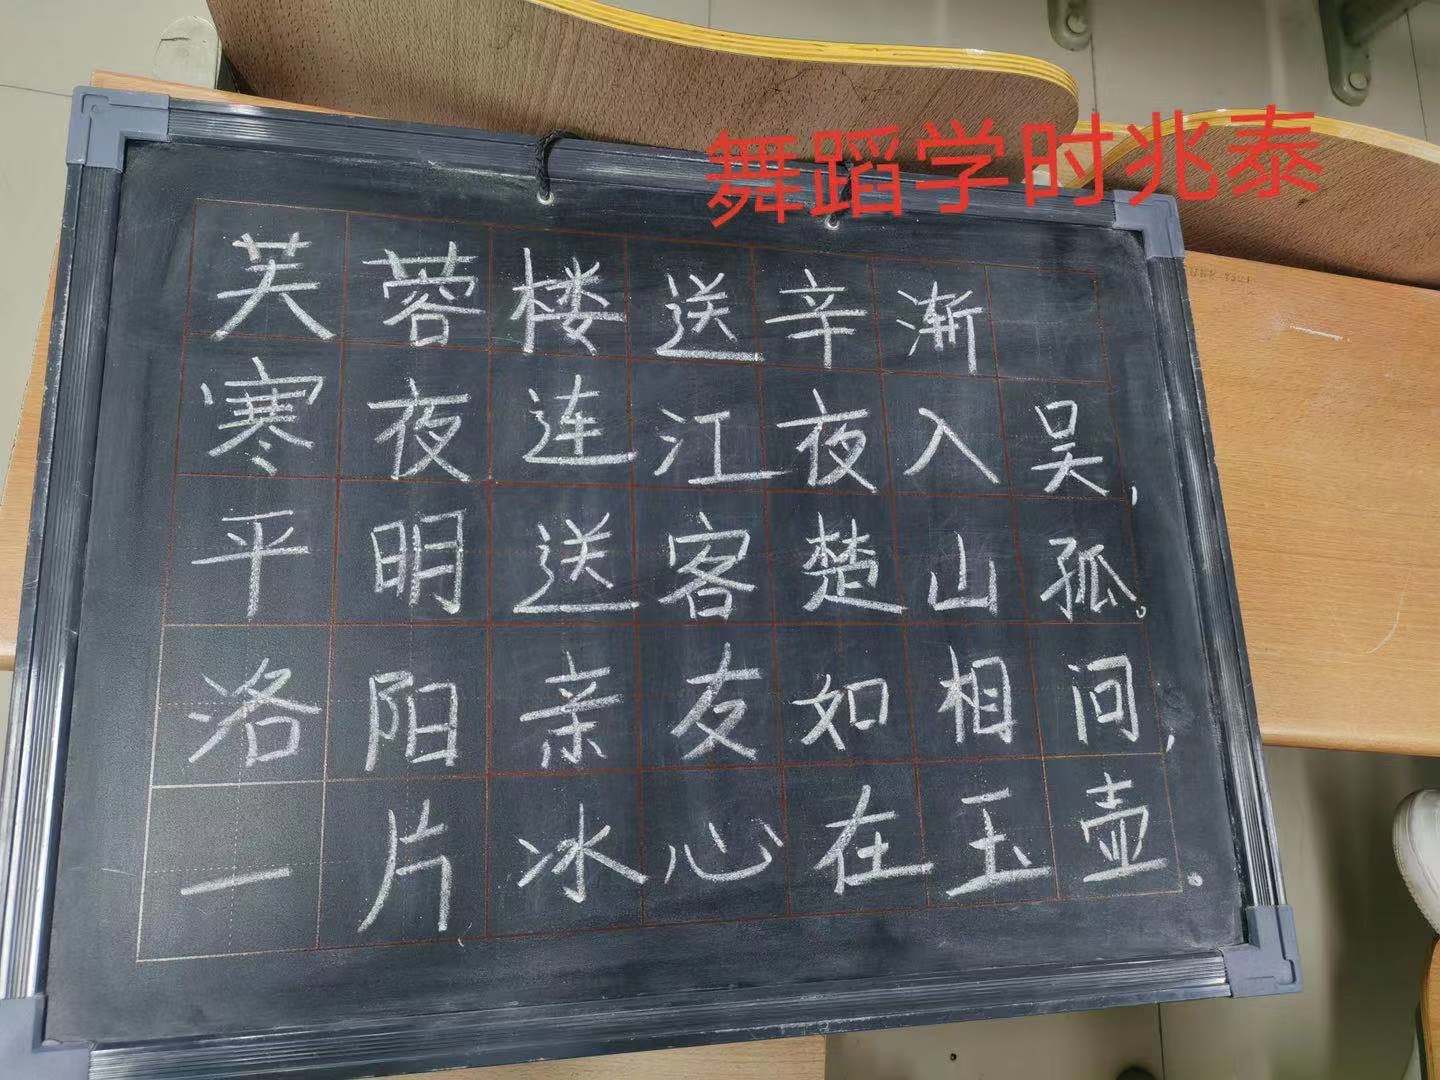 舞蹈学时兆泰
芙蓉楼送辛渐
寒夜连江夜入吴,
平明送客楚山孤。
洛阳亲友如相问,
一片冰心在玉壶。